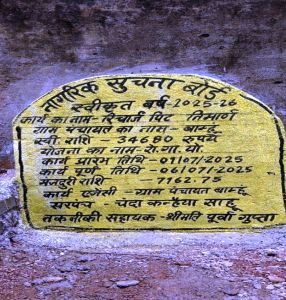 नागरिक सुचना बोर्ड
स्वीकृत वर्ष-2025-26
कार्य का नाम- रिचार्ज पिट निर्माण
ग्राम पंचायत का नाम- बाम्हू
स्वी. राशि - 34680 रुपये
योजना का नाम रा.गा.यो.
कार्य प्रारंभ तिथि - 01/07/2025
कार्य पूर्ण तिथि - 06/07/2025
मजदुरी राशि - 7162.75
कार्य एजेंसी - ग्राम पंचायत बाम्हू
सरपंच - चंदा कन्हैया साहू
तकनीकी सहायक - श्रीमति पूर्वा गुप्ता